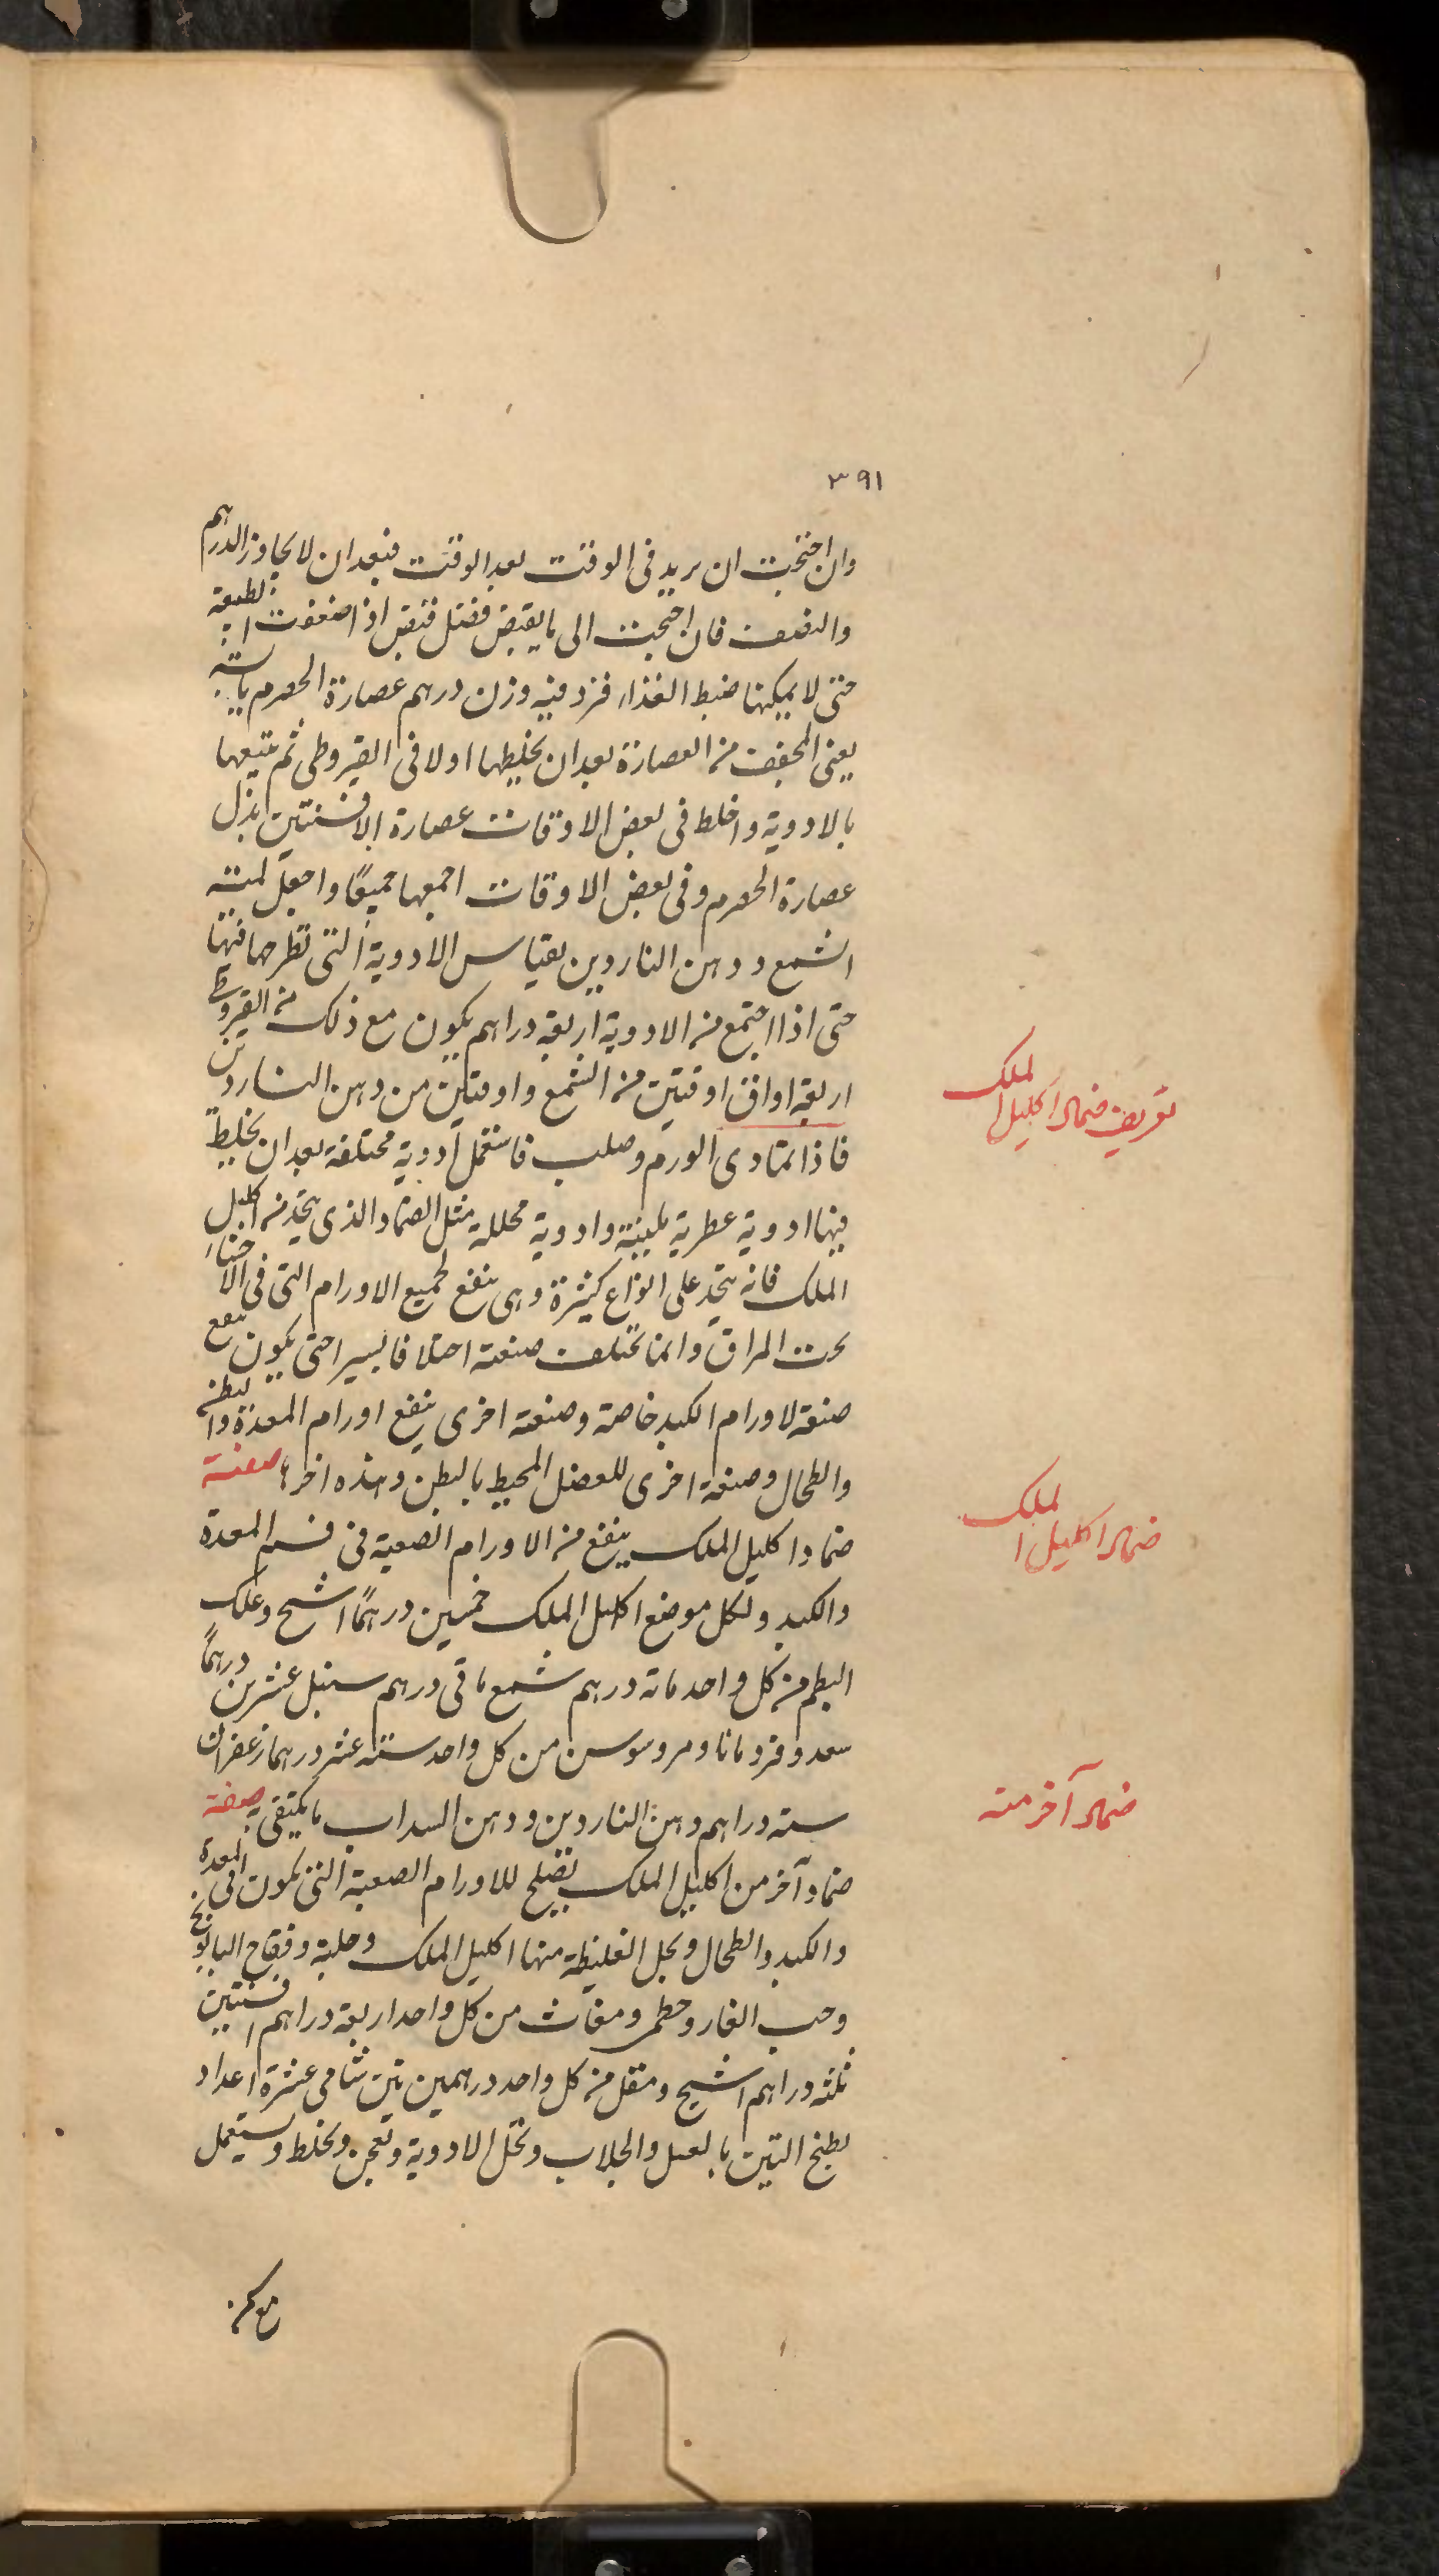 ٣٩١
وان احتجت ان يريد فى الوقت بعد الوقت فبعد ان لا يجاوز الدرهم
والنصف فان احتجت الى ما يقبض فضل قبض اذا ضعفت الطبيعة
حتى لا يمكنها ضبط الغذاء فزد فيه وزن درهم عصارة الحصرم يابسة
يعنى المجفف من العصارة بعد ان يخلطها اولا فى القيروطى ثم تتبعها
بالادوية واخلط فى بعض الاوقات عصارة الافسنتين بدل
عصارة الحصرم وفى بعض الاوقات اجمعها جميعًا واجعل كمية
الشمع ودهن الناردين بقياس الادوية التى تطرحها فيها
حتى اذا اجتمع من الادوية اربعة دراهم يكون مع ذلك من القيروطى
اربعة اواق اوقتين من الشمع واوقتين من دهن الناردين
فاذا تمادى الورم وصلب فاستعمل ادوية مختلفة بعد ان يخلط
فيها ادوية عطرية ملينة وادوية محللة مثل الضماد الذى يتخذ من اكليل
الملك فانه يتخذ على انواع كثيرة وهى ينفع لجميع الاورام التى فى الاحشاء
تحت المراق وانما تختلف صنعته اختلافا يسيرا حتى يكون ينفع
صنعة لاورام الكبد خاصة وصنعة اخرى ينفع اورام المعدة والبطن
والطحال وصنعة اخرى للعضل المحيط بالبطن وهذه اخر صفة
ضماد اكليل الملك ينفع من الاورام الصعبة فى فم المعدة
والكبد ولكل موضع اكليل الملك خمسين درهمًا اشج وعلك
البطم من كل واحد ماتة درهم شمع ماتى درهم سنبل عشرين درهمًا
سعد وقردمانا ومر وسوسن من كل واحد ستة عشر درهما زعفران
ستة دراهم دهن الناردين ودهن السداب ما يكتفى به صفة
ضماد آخر من اكليل الملك يصلح للاورام الصعبة التى تكون فى المعدة
والكبد والطحال ويحل الغليظة منها اكليل الملك وحلبة وفقاح البابونج
وحب الغار وخطمى ومغاث من كل واحد اربعة دراهم افسنتين
ثلثه دراهم اشج ومقل من كل واحد درهمين تين شامى عشرة اعداد
يطبخ التين بالعسل والجلاب وتحل الادوية وتعجن وتخلط ويستعمل
تعريف ضماد اكليل الملك
ضماد اكليل الملك
ضماد آخر منه